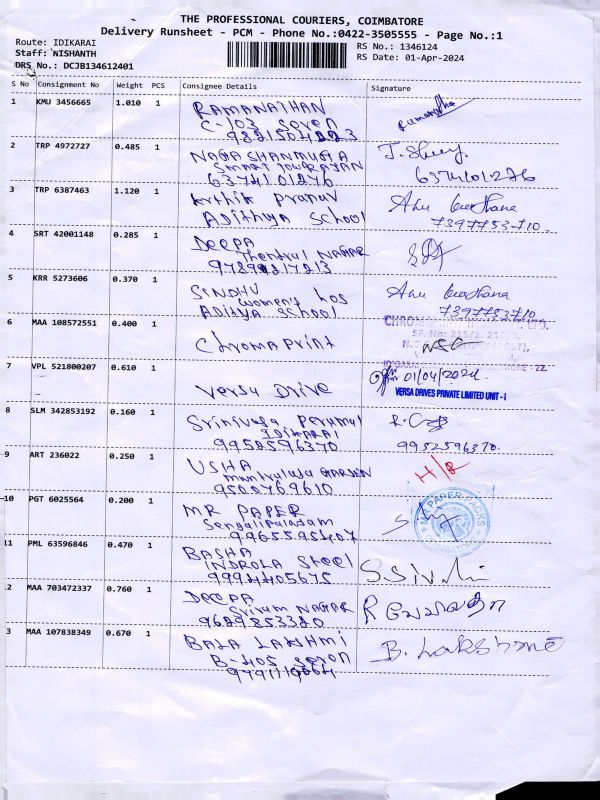 THE PROFESSIONAL COURIERS, COIMBATORE
Delivery Runsheet - PCM - Phone No.:0422-3505555 - Page No.:1
Route: IDIKARAI
Staff: NISHANTH
DRS No.: DCJB134612401
RS No.: 1346124
RS Date: 01-Apr-2024
S No Consignment No Weight PCS Consignee Details Signature
1 KMU 3456665 1.010 1 RAMANATHAN
C-103 Seven
2 TRP 4972727 0.485 1 NAGA SHANMUGA
6374101276
6374101276
3 TRP 6387463 1.120 1 krthik pranav
Adithya School
7397753710.
4 SRT 42001148 0.285 1 DEEPA
Thentral NAGAR
5 KRR 5273606 0.370 1 SINDHU
women's hos
ADITYA School
7397753710
6 MAA 108572551 0.400 1 Chromaprint
7 VPL 521800207 0.610 1 Versa Drive
01/04/2024
VERSA DRIVES PRIVATE LIMITED UNIT - I
8 SLM 342853192 0.160 1 Srinivasa Perumal
IDIKARAI
9952596370
9952596370.
9 ART 236022 0.250 1 USHA
GARDEN
H/B
10 PGT 6025564 0.200 1 MR PAPER
11 PML 63596846 0.470 1 BASHA
INDROLA Steel
9994405675
12 MAA 703472337 0.760 1 DEEPA
Sriram NAGAR
9629853320
13 MAA 107838349 0.670 1 BALA LAKSHMI
B-405
B. Lakshmi